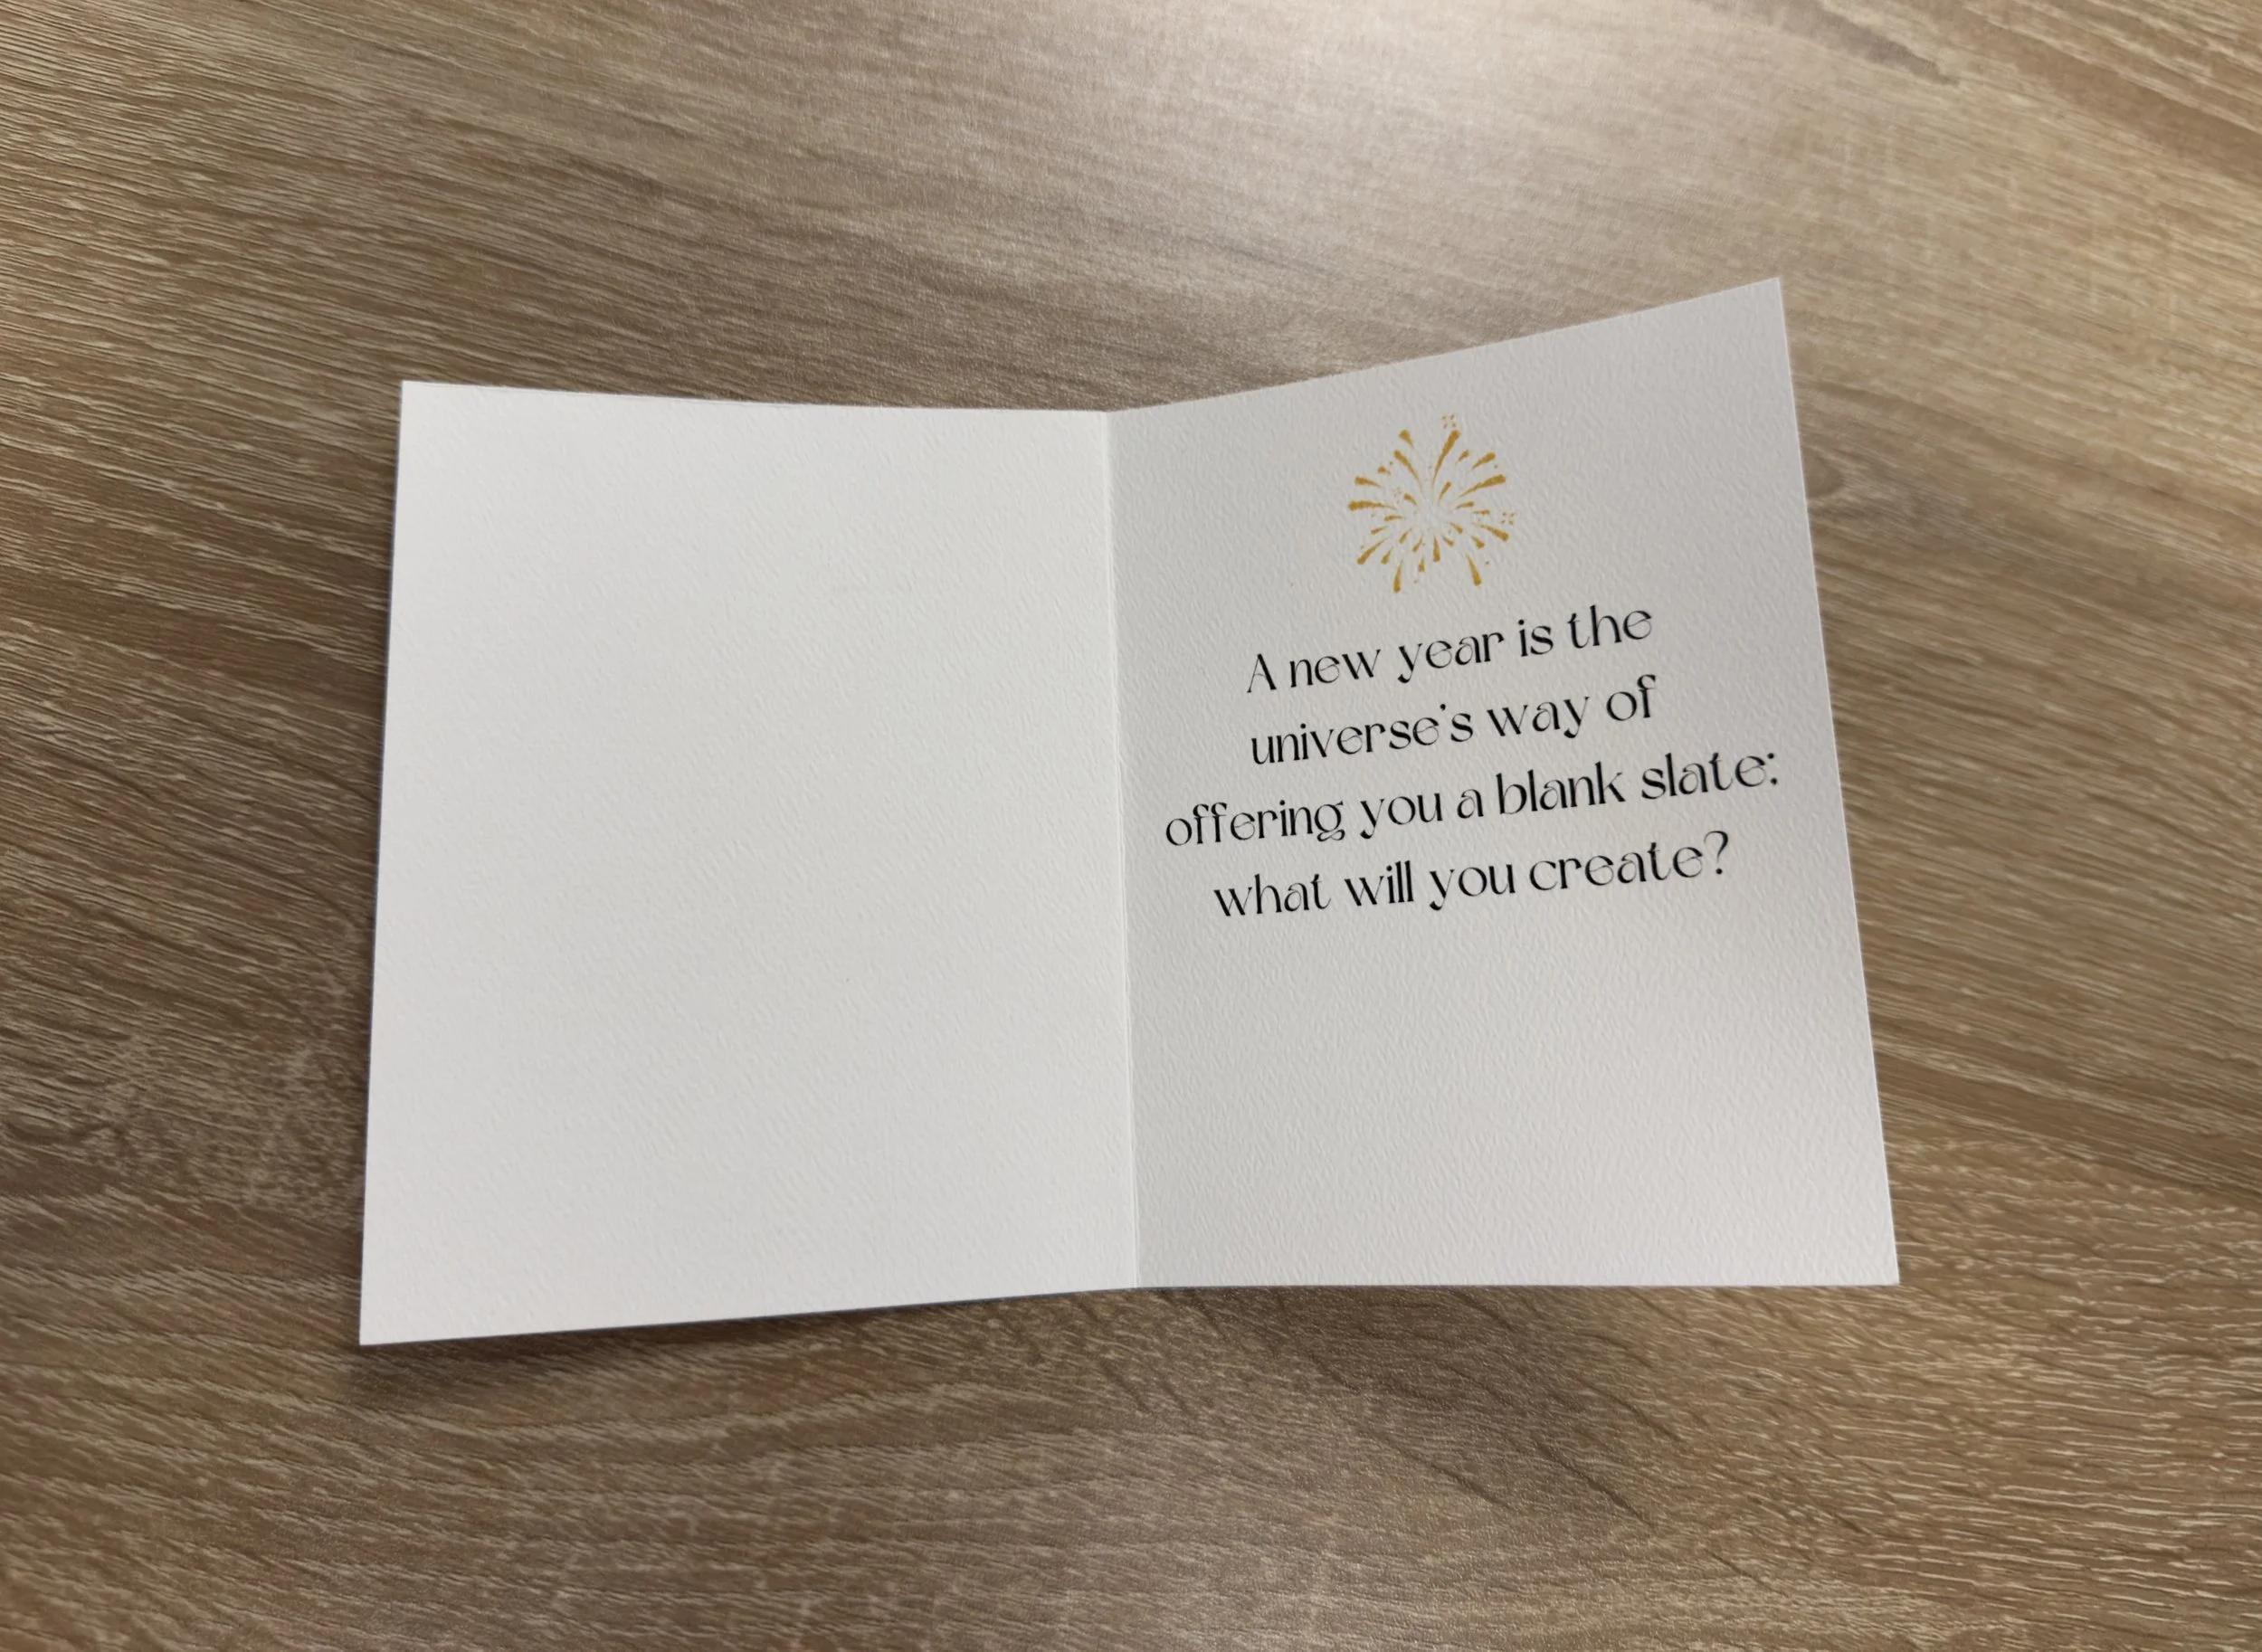 A new year is the
universe's way of
offering you a blank slate:
what will you create?